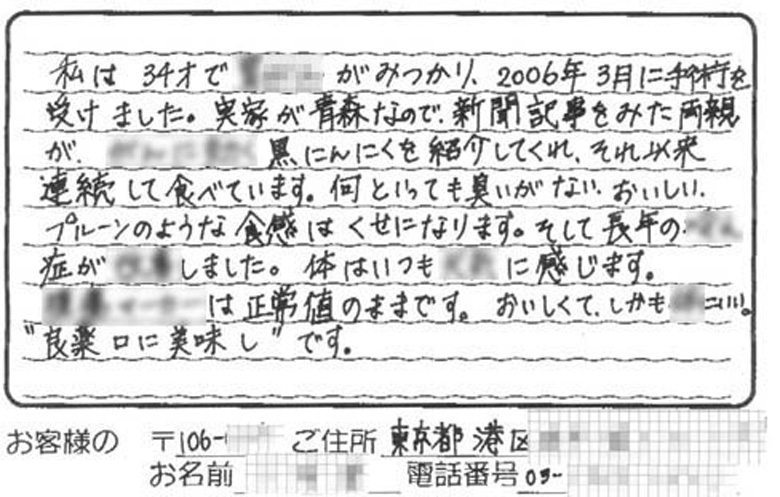 私は 34才で がみつかり、2006年 3月に手術を
受けました。実家が青森なので、新聞記事をみた両親
が、 黒にんにくを紹介してくれ、それ以来
連続して食べています。何といっても臭いがない、おいしい、
プルーンのような食感はくせになります。そして長年の
症が しました。体はいつも に感じます。
は正常値のままです。おいしくて、しかも にいい。
"良薬口に美味し"です。
お客様の 〒106- ご住所 東京都 港区
お名前 電話番号 03-